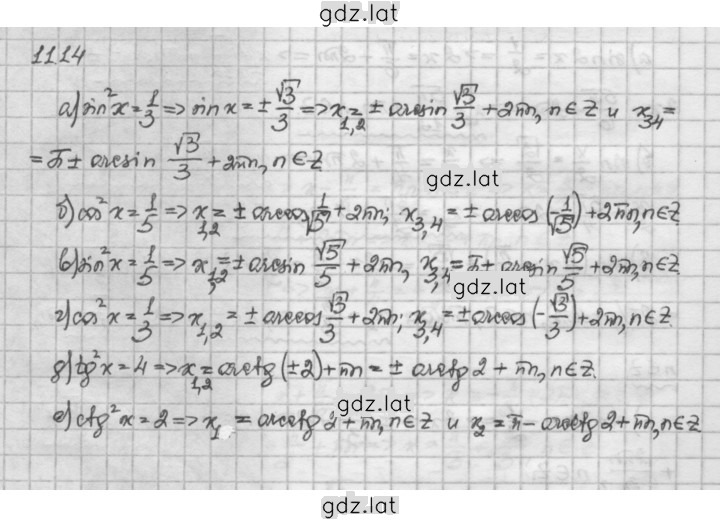 gdz.lat
1114
а) sin²x = 1/3 => sin x = ± √3/3 => x₁,₂ = ± arcsin √3/3 + 2πn, n∈Z и x₃,₄ =
= π ± arcsin √3/3 + 2πn, n∈Z
gdz.lat
б) cos²x = 1/5 => x₁,₂ = ± arccos 1/√5 + 2πn; x₃,₄ = ± arccos (-1/√5) + 2πn, n∈Z
в) sin²x = 1/5 => x₁,₂ = ± arcsin √5/5 + 2πn, x₃,₄ = π ± arcsin √5/5 + 2πn, n∈Z
gdz.lat
г) cos²x = 1/3 => x₁,₂ = ± arccos √3/3 + 2πn; x₃,₄ = ± arccos (-√3/3) + 2πn, n∈Z
д) tg²x = 4 => x₁,₂ = arctg (±2) + πn = ± arctg 2 + πn, n∈Z.
gdz.lat
е) ctg²x = 2 => x₁ = arcctg 2 + πn, n∈Z и x₂ = π - arcctg 2 + πn, n∈Z
gdz.lat